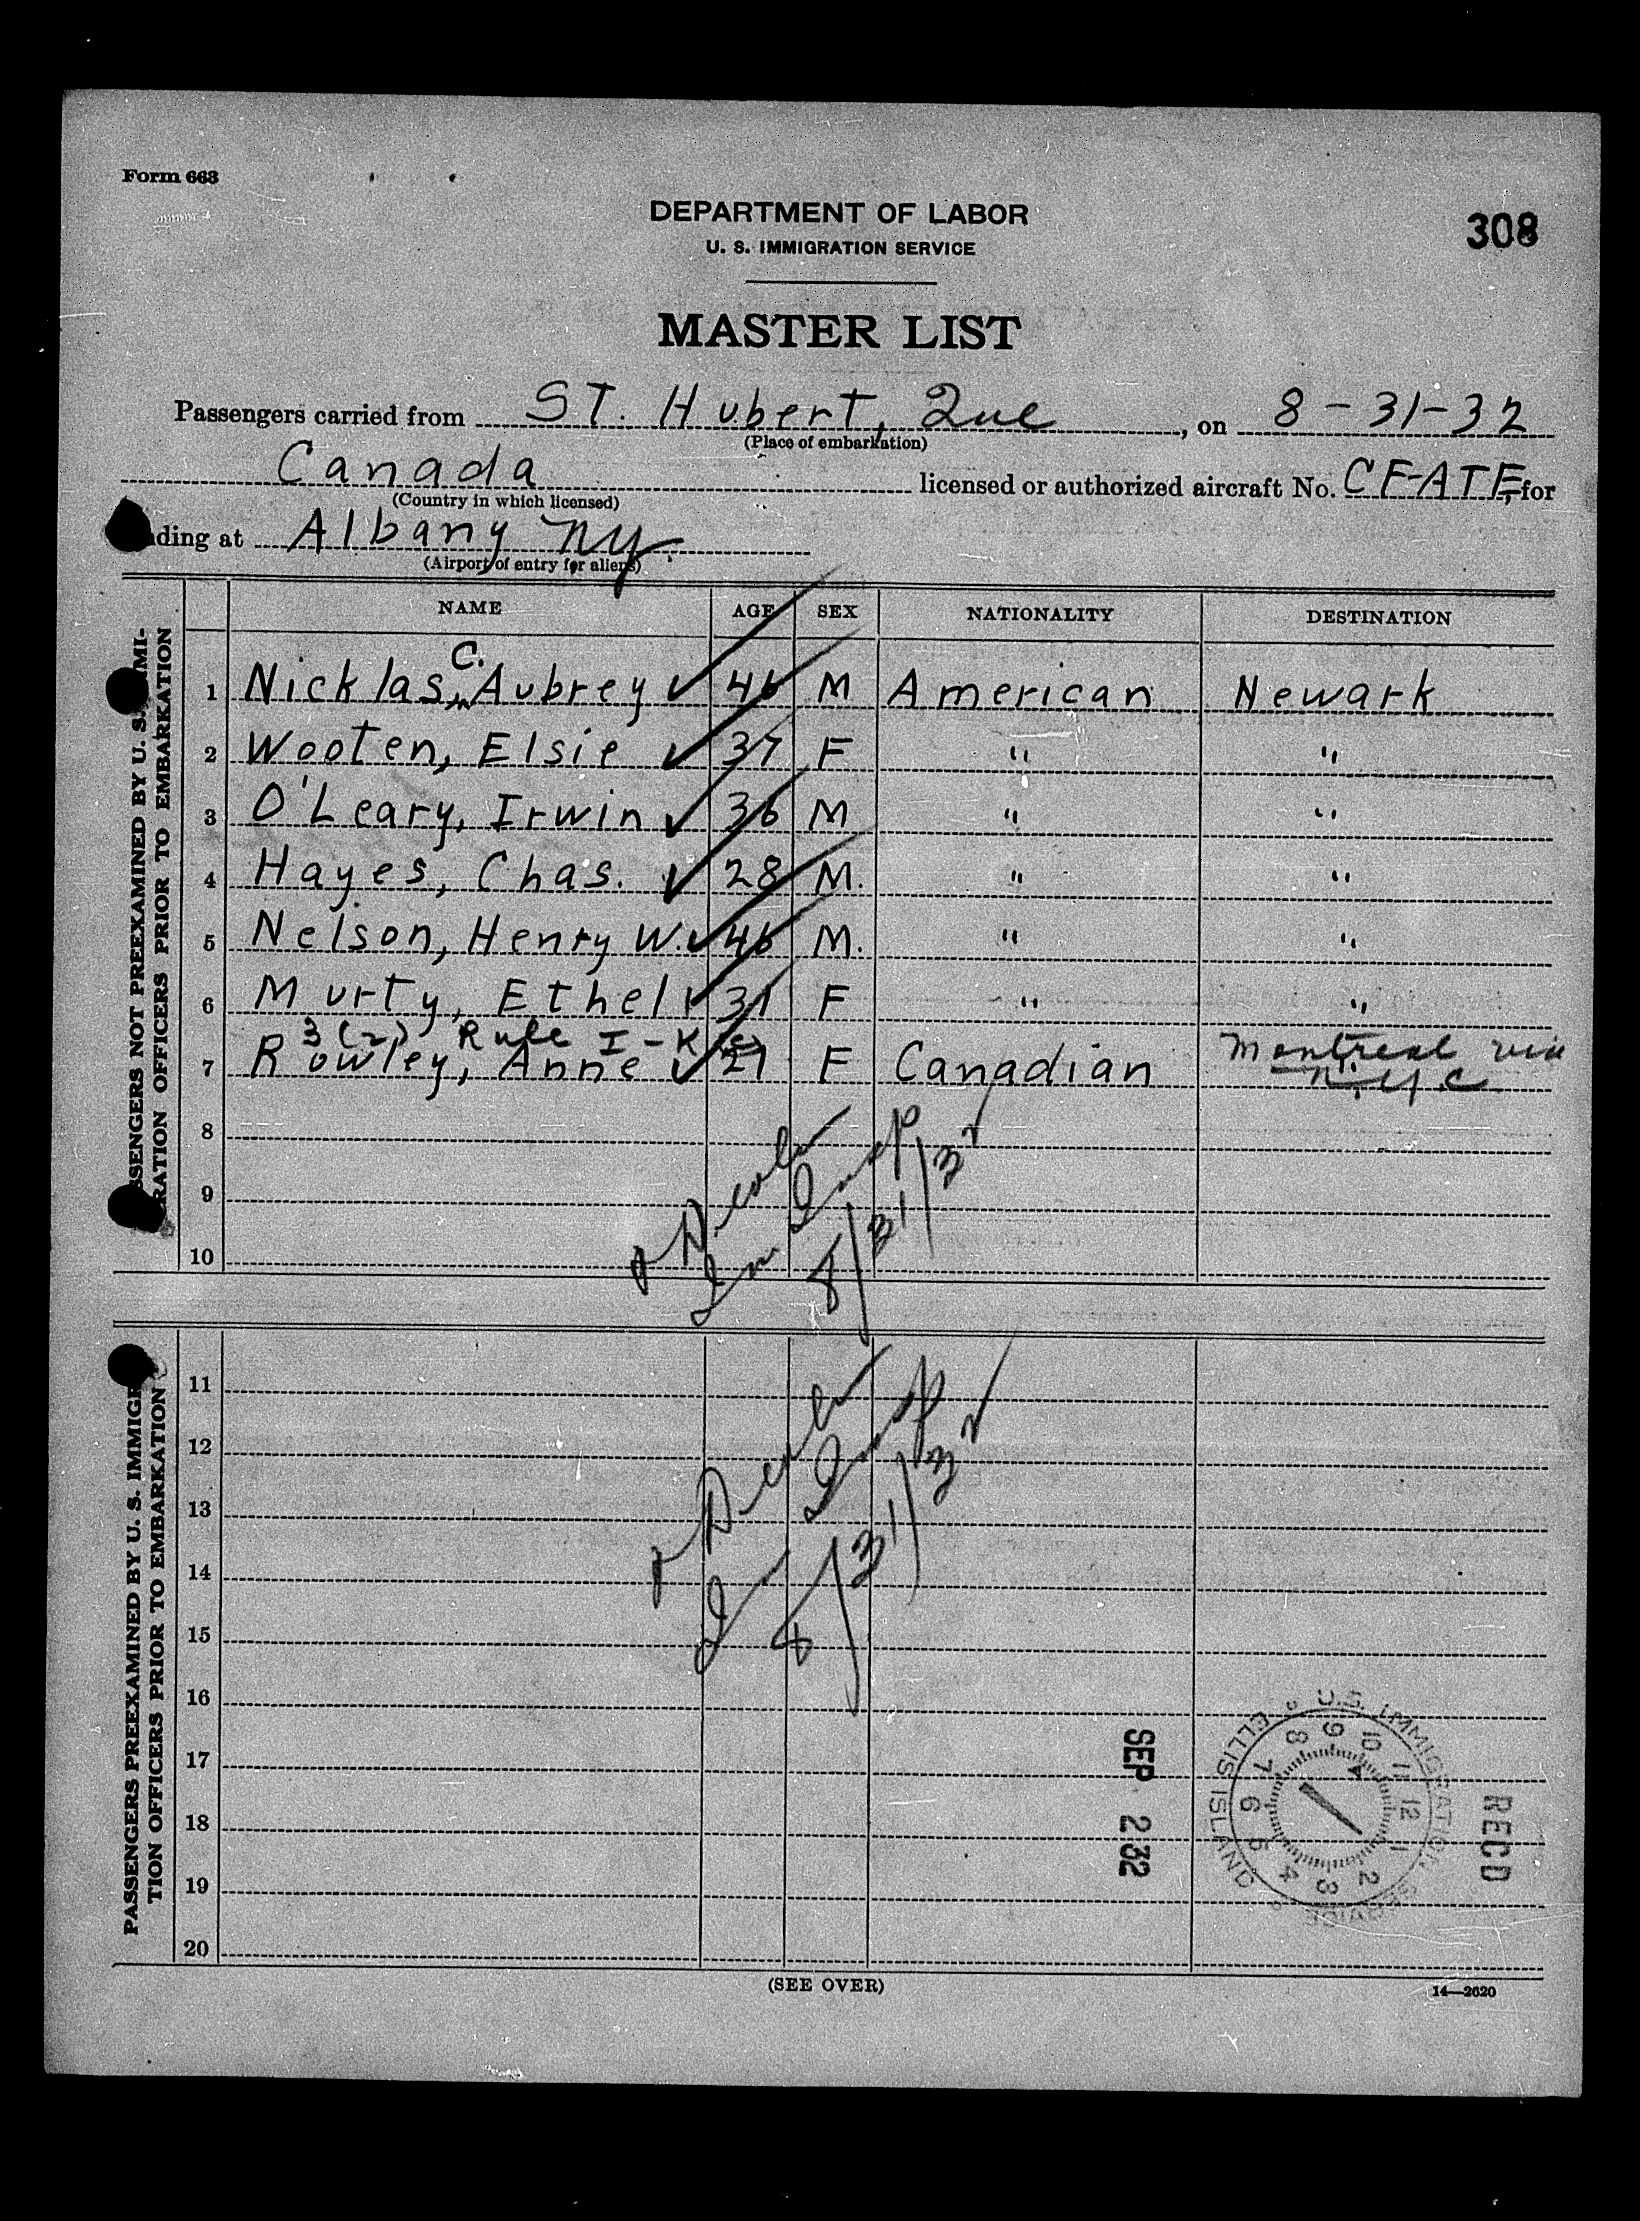 Form 663
DEPARTMENT OF LABOR
U. S. IMMIGRATION SERVICE
308
MASTER LIST
Passengers carried from ST. Hubert, Que, on 8-31-32
(Place of embarkation)
Canada licensed or authorized aircraft No. CF-ATF, for
(Country in which licensed)
ding at Albany NY
(Airport of entry for aliens)
NAME AGE SEX NATIONALITY DESTINATION
PASSENGERS NOT PREEXAMINED BY U. S. IMMI-
GRATION OFFICERS PRIOR TO EMBARKATION
C.
1 Nicklas, Aubrey ✓ 46 M American Newark
2 Wooten, Elsie ✓ 37 F " "
3 O'Leary, Irwin ✓ 36 M " "
4 Hayes, Chas. ✓ 28 M. " "
5 Nelson, Henry W. ✓ 46 M. " "
6 Murty, Ethel ✓ 31 F " "
3(2) Rule I-K
7 Rowley, Anne ✓ 21 F Canadian Montreal via
N.Y.C
8
9
10
Im Insp
8/31/32
PASSENGERS PREEXAMINED BY U. S. IMMIGRA-
TION OFFICERS PRIOR TO EMBARKATION
11
12
13
14
15
16
17
18
19
20
Im Insp
8/31/32
SEP 2 '32
U.S. IMMIGRATION SERVICE
ELLIS ISLAND
1 2 3 4 5 6 7 8 9 10 11 12
RECD
(SEE OVER)
14—2620